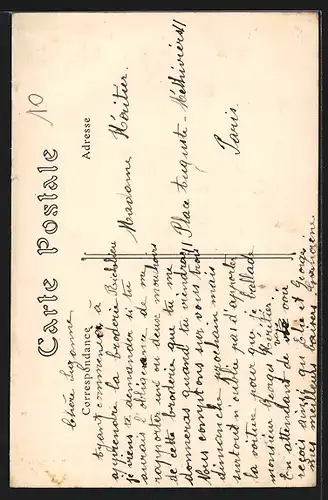 10
Carte Postale
Correspondance
Adresse
Chère Suzanne
Ayant commencer à
apprendre la broderie Richelieu
je viens te demander si tu
aurais l'obligeance de me
rapporter un ou deux mouchoirs
de cette broderie que tu me
donneras quand tu viendras
Nous comptons sur vous trois
dimanche prochain mais
surtout n'oublie pas d'apporter
la voiture pour que je ballade
monsieur Georges Héritier.
En attendant de vous voir
reçois ainsi que et Georges
mes meilleurs baisers
Madame Héritier.
11 Place Auguste-Méthiviers 11
Paris.